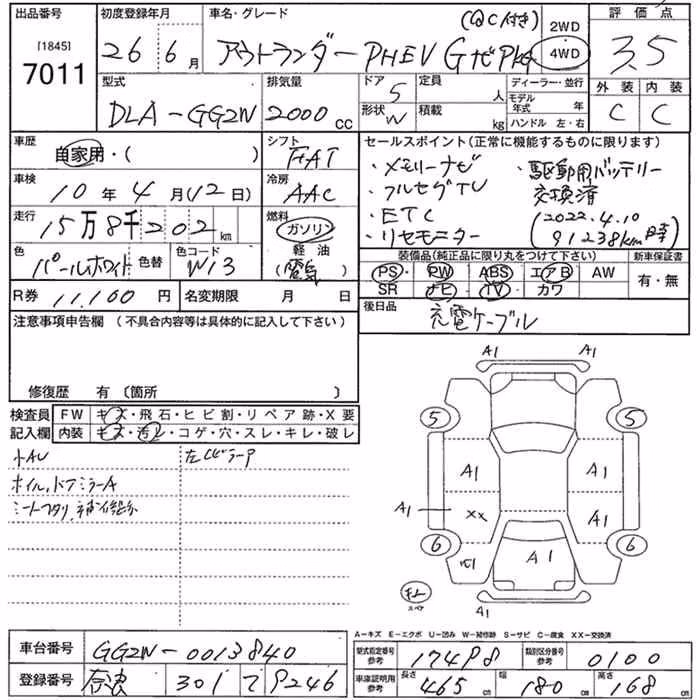 出品番号 初度登録年月 車名・グレード 評価点
[1845] 7011
26年 6月
(QC付き)
アウトランダーPHEV GナビPkg
2WD 4WD
3.5
型式 排気量 ドア 定員 ディーラー・並行 外装 内装
DLA-GG2W 2000cc 5 人
モデル年式 年
形状 W 積載 kg ハンドル 左・右
C C
車歴 シフト セールスポイント(正常に機能するものに限ります)
自家用・( ) FAT
・メモリーナビ ・駆動用バッテリー
車検 冷房
10年4月(12日) AAC
・フルセグTV 交換済
・ETC (2022.4.10
走行 燃料
15万8千202km ガソリン
・リモモニター 91238km時)
軽油
色 色替 色コード
パールホワイト W13 (電気)
装備品(純正品に限り丸をつけて下さい) 新車保証書
PS・PW ABS エアB AW 有・無
SR ナビ TV カワ
R券 11,160円 名変期限 月 日
後日品 充電ケーブル
注意事項申告欄 (不具合内容等は具体的に記入して下さい)
修復歴 有 (箇所 )
検査員 FW キズ・飛石・ヒビ割・リペア跡・X要
記入欄 内装 キズ・汚レ・コゲ・穴・スレ・キレ・破レ
ホイル,ドアミラーA
A1 A1
5 5
A1 A1
A1 XX A1
6 6
A1
A1
スペア
A-キズ E-エクボ U-凹み W-補修跡 S-サビ C-腐食 XX-交換済
車台番号 GG2W-0013840
登録番号 奈良 301 て 9246
型式指定番号 参考 17498 類別区分番号 参考 0100
車庫証明用 参考 長さ 465cm 幅 180cm 高さ 168cm